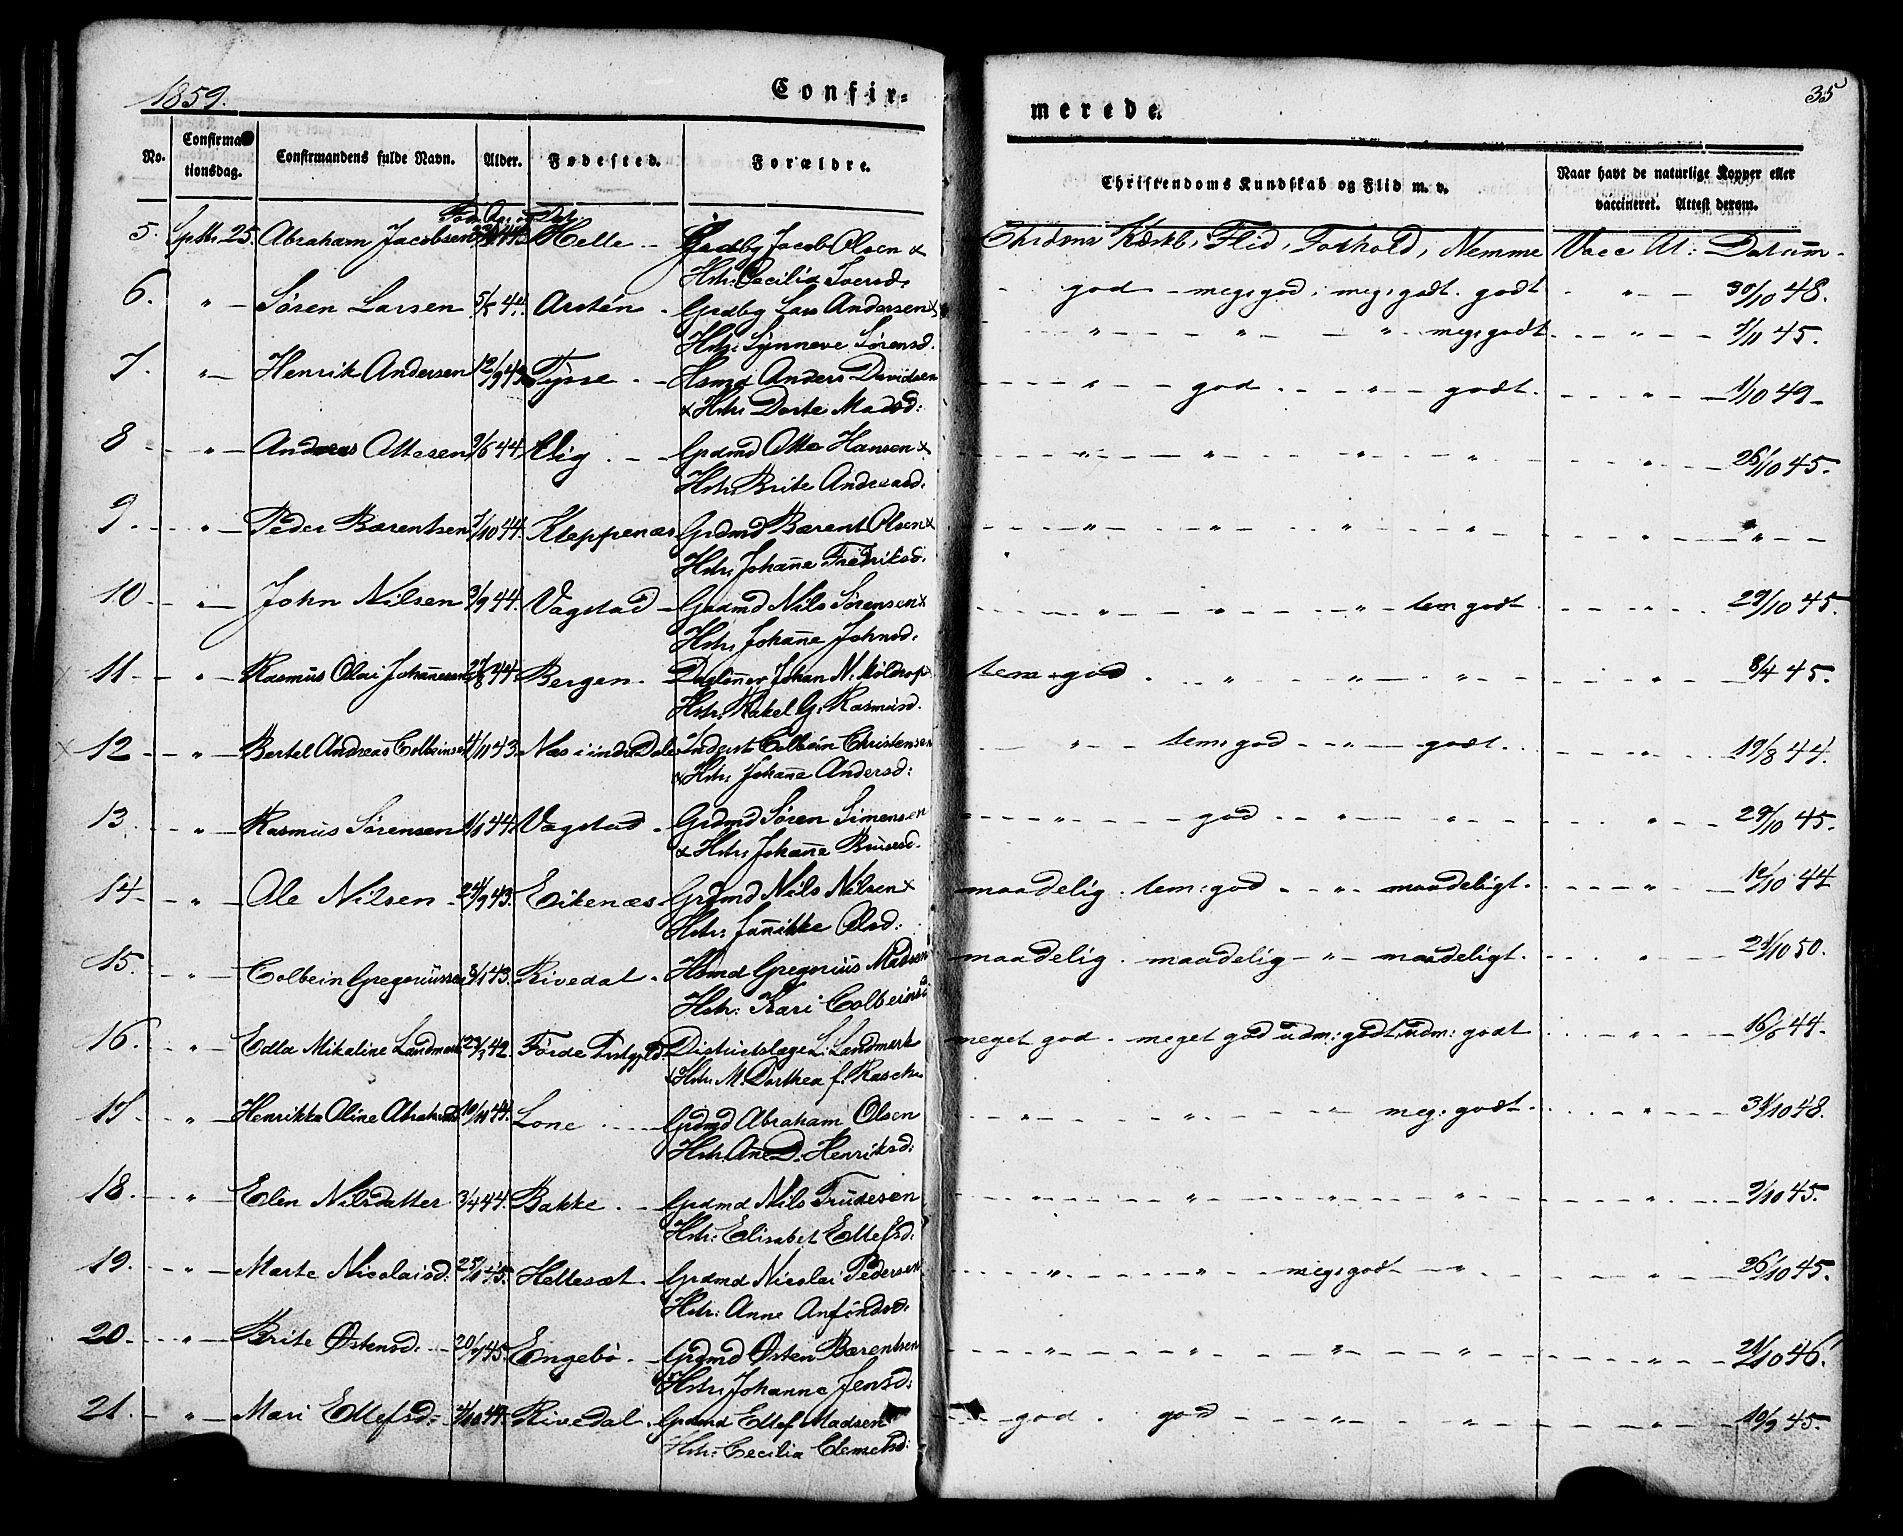 1859.
Confir-
merede.
35
No.
Confirma-
tionsdag.
Confirmandens fulde Navn.
Alder.
Fødested.
Forældre.
Christendoms Kundskab og Flid m. v.
Naar havt de naturlige Kopper eller
vaccineret. Attest derom.
5. Septb. 25. Abraham Jacobsen Helle Grdbg Jacob Olsen & Chrdms Kdskb, Flid, Forhold, Nemme Vacc At: Datum.
Hstr: Cecilia Iversd. god meg: god meg: godt godt " 30/10 48.
6. " Søren Larsen 5/5 44. Arsten Grdbg Lars Andersen &
Hstr: Synneve Sørensd. " " " meg: godt " 7/11 45.
7. " Henrik Andersen 12/9 43 Tysse Hsmd Anders Davidsen
& Hstr: Dorte Madsd: " god " godt " 1/10 49
8 " Andreas Ottesen 9/6 44. Vig Grdmd Otto Hansen &
Hstr: Brite Andreasd. " " " " " 26/10 45.
9. " Peder Bærentsen 7/10 44. Kleppenæs Grdmd Bærent Olsen &
Hstr: Johanne Fredriksd. " " " " " "
10 " John Nilsen 3/9 44. Vagstad Grdmd Nils Sørensen &
Hstr: Johanne Johnsd: " " " tem godt " 29/10 45.
11 " Rasmus Olai Johannesen 44. Bergen Johan N. &
Hstr: Rakel G. Rasmusd. tem: god " " " " 8/4 45.
12 " Bertel Andreas Colbeinsen 4/11 43. Næs i indre Dale Inderst Colbein Christensen
& Hstr: Johanne Andersd: " tem: god " godt " 19/8 44.
13 " Rasmus Sørensen 44. Vagstad Grdmd Søren Simensen
& Hstr: Johanne " god " " " 29/10 45.
14 " Ole Nilsen 24/9 43. Eikenæs Grdmd Nils Nilsen &
Hstr: Jannikke Olsd: maadelig tem: god " maadeligt. " 12/10 44
15. " Colbein Gregoriussen 3/1 43. Rivedal Hsmd Gregorius Madsen
Hstr: Kari Colbeinsd maadelig maadelig " maadeligt. " 21/10 50.
16. " Edla Mikaline Landmark 23/3 42. Førde Prstgjld. Districtslæge L. Landmark
& Hstr: M. Dorthea f. Rasch meget god. meget god udm: godt udm: godt " 16/8 44.
17 " Henrikka Oline Abrahamsd 10/11 44. Lone Grdmd Abraham Olsen
Hstr: Ane D. Henriksd: " " " meg: godt. " 31/10 48.
18. " Elen Nilsdatter 3/4 44 Bakke Grdmd Nils Trudesen
Hstr: Elisabet Ellefsd: " " " " " 9/10 45.
19. " Marte Nicolaisd. 25/1 45. Hellesæt Grdmd Nicolai Pedersen
Hstr: Anne Anfindsd. " " meg: godt " " 26/10 45.
20 " Brite Østensd. 20/7 45. Engebø Grdmd Østen Bærentsen
Hstr: Johanne Jensd: " " " " " 21/10 46.
21. " Mari Ellefsd: 4/10 44. Rivedal Grdmd Ellef Madsen
Hstr: Cecilia Clemetsd: god. god " " " 10/9 45.